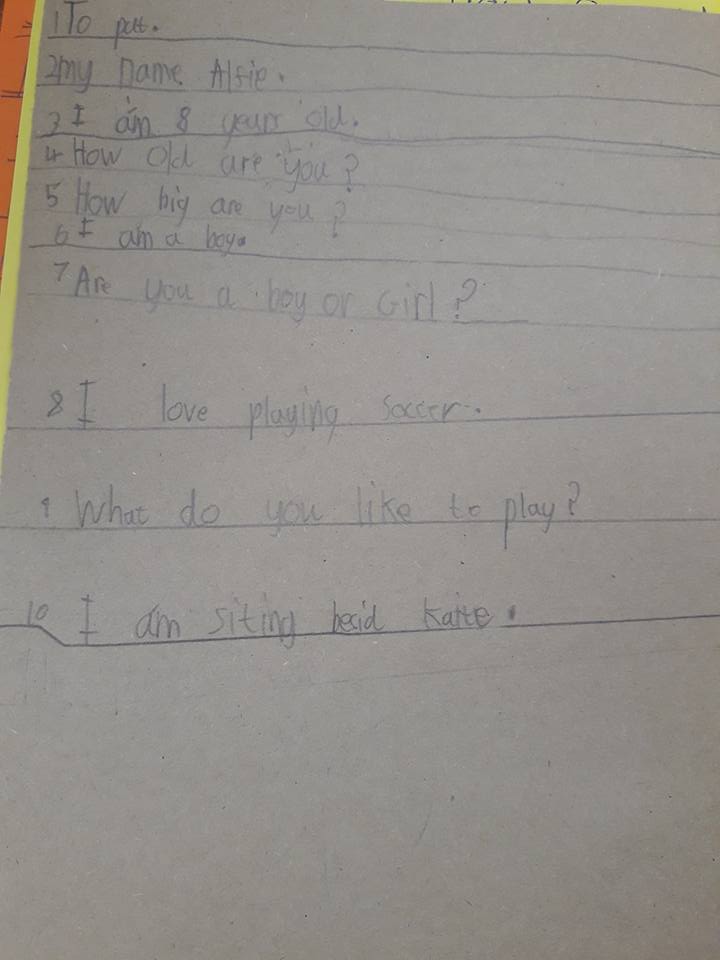 1 To patt.
2 my name Alfie.
3 I am 8 years old.
4 How old are you?
5 How big are you?
6 I am a boy.
7 Are you a boy or Girl?
8 I love playing soccer.
9 What do you like to play?
10 I am siting becid Katte.